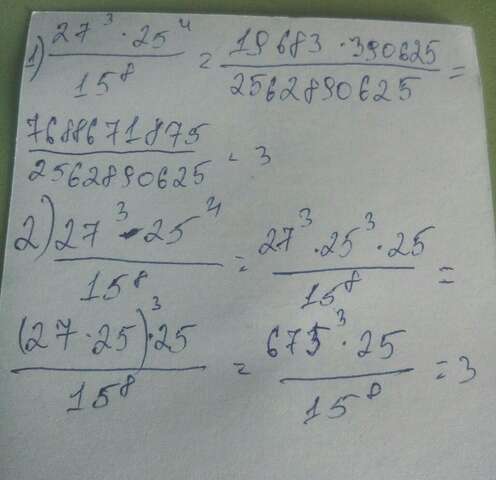 1) 27³ · 25⁴ / 15⁸ = 19683 · 390625 / 2562890625 =
7688671875 / 2562890625 = 3
2) 27³ · 25⁴ / 15⁸ = 27³ · 25³ · 25 / 15⁸ =
(27 · 25)³ · 25 / 15⁸ = 675³ · 25 / 15⁸ = 3